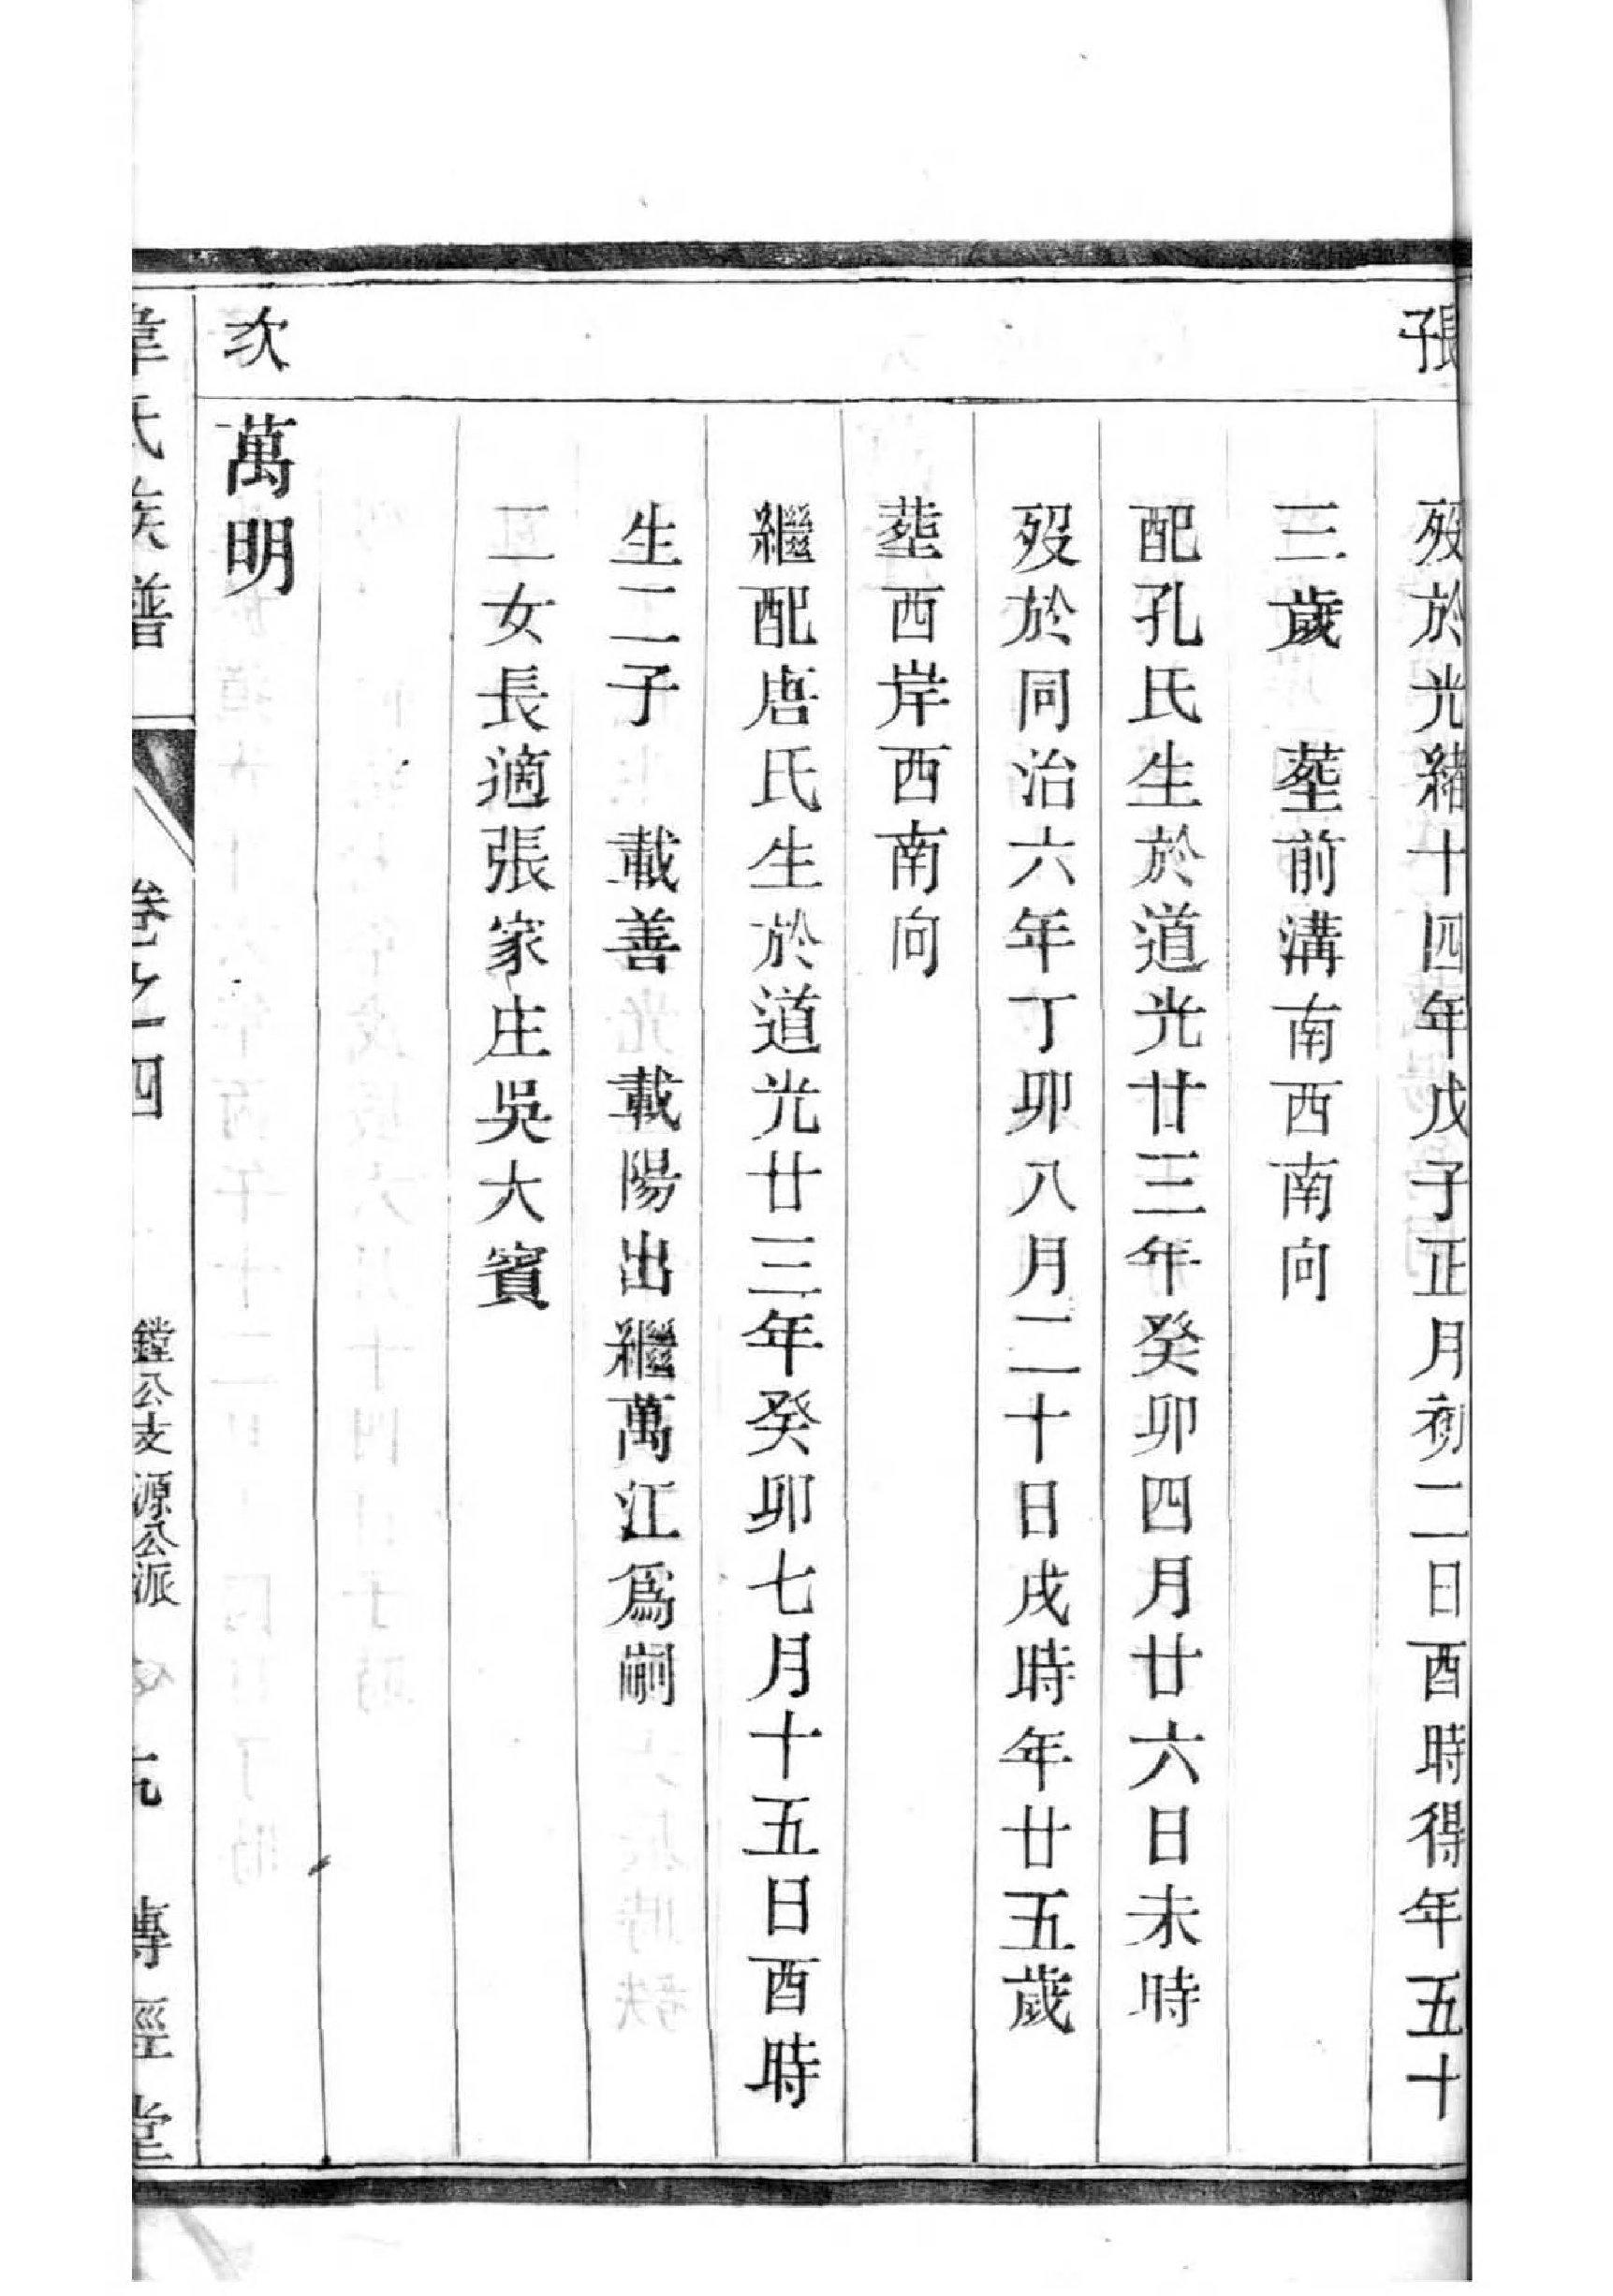 張
歿於光緒十四年戊子正月初二日酉時得年五十
三歲 塟前溝南西南向
配孔氏生於道光廿三年癸卯四月廿六日未時
歿於同治六年丁卯八月二十日戌時年廿五歲
塟西岸西南向
繼配唐氏生於道光廿三年癸卯七月十五日酉時
生二子 載善 載陽出繼萬江爲嗣
二女長適張家庄吳大賓
次 萬明
韋氏族譜 卷之四 鏜公支 源公派 傳經堂